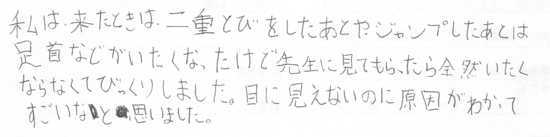 私は、来たときは、二重とびをしたあとや、ジャンプしたあとは
足首などがいたくなったけど先生に見てもらったら全然いたく
ならなくてびっくりしました。目に見えないのに原因がわかって
すごいなと思いました。